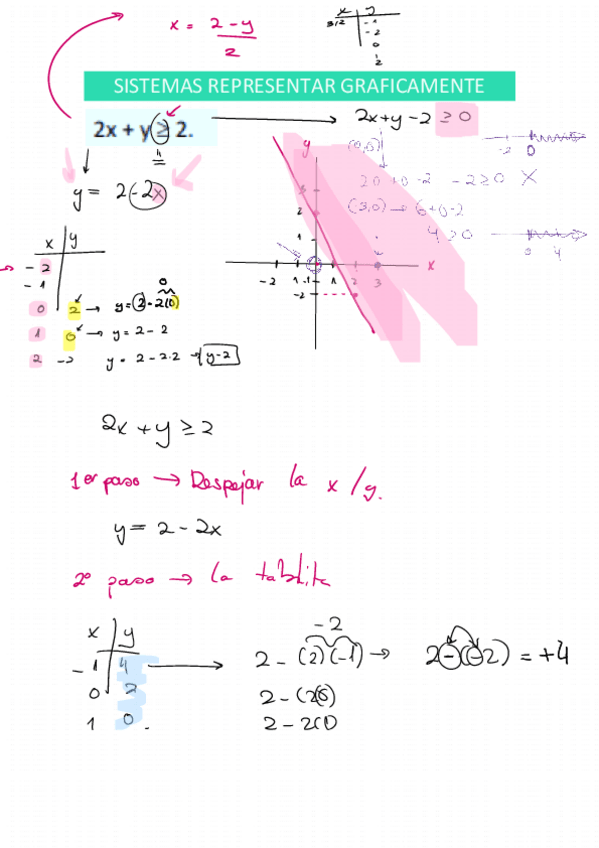 x = 2 - y / 2
x y
3/2 -1
-2
0
1
2
SISTEMAS REPRESENTAR GRAFICAMENTE
2x + y ≥ 2.
2x + y - 2 ≥ 0
(0,0)
-2 0
y = 2 - 2x
20 + 0 - 2 -2 ≥ 0 X
(3,0) → 6 + 0 - 2
4 ≥ 0
0 4
y
3
2
1
x
-2 1 -1 1 2 3
-2
x y
-2
-1
0 2 → y = 2 - 2(0)
0
1 0 → y = 2 - 2
2 -2 y = 2 - 2·2 → y - 2
2x + y ≥ 2
1er paso → Despejar la x / y.
y = 2 - 2x
2º paso → la tablita
x y
-1 4 → 2 - (2)(-1) → 2 - (-2) = +4
-2
0 2 2 - (2·0)
1 0 . 2 - 2(1)